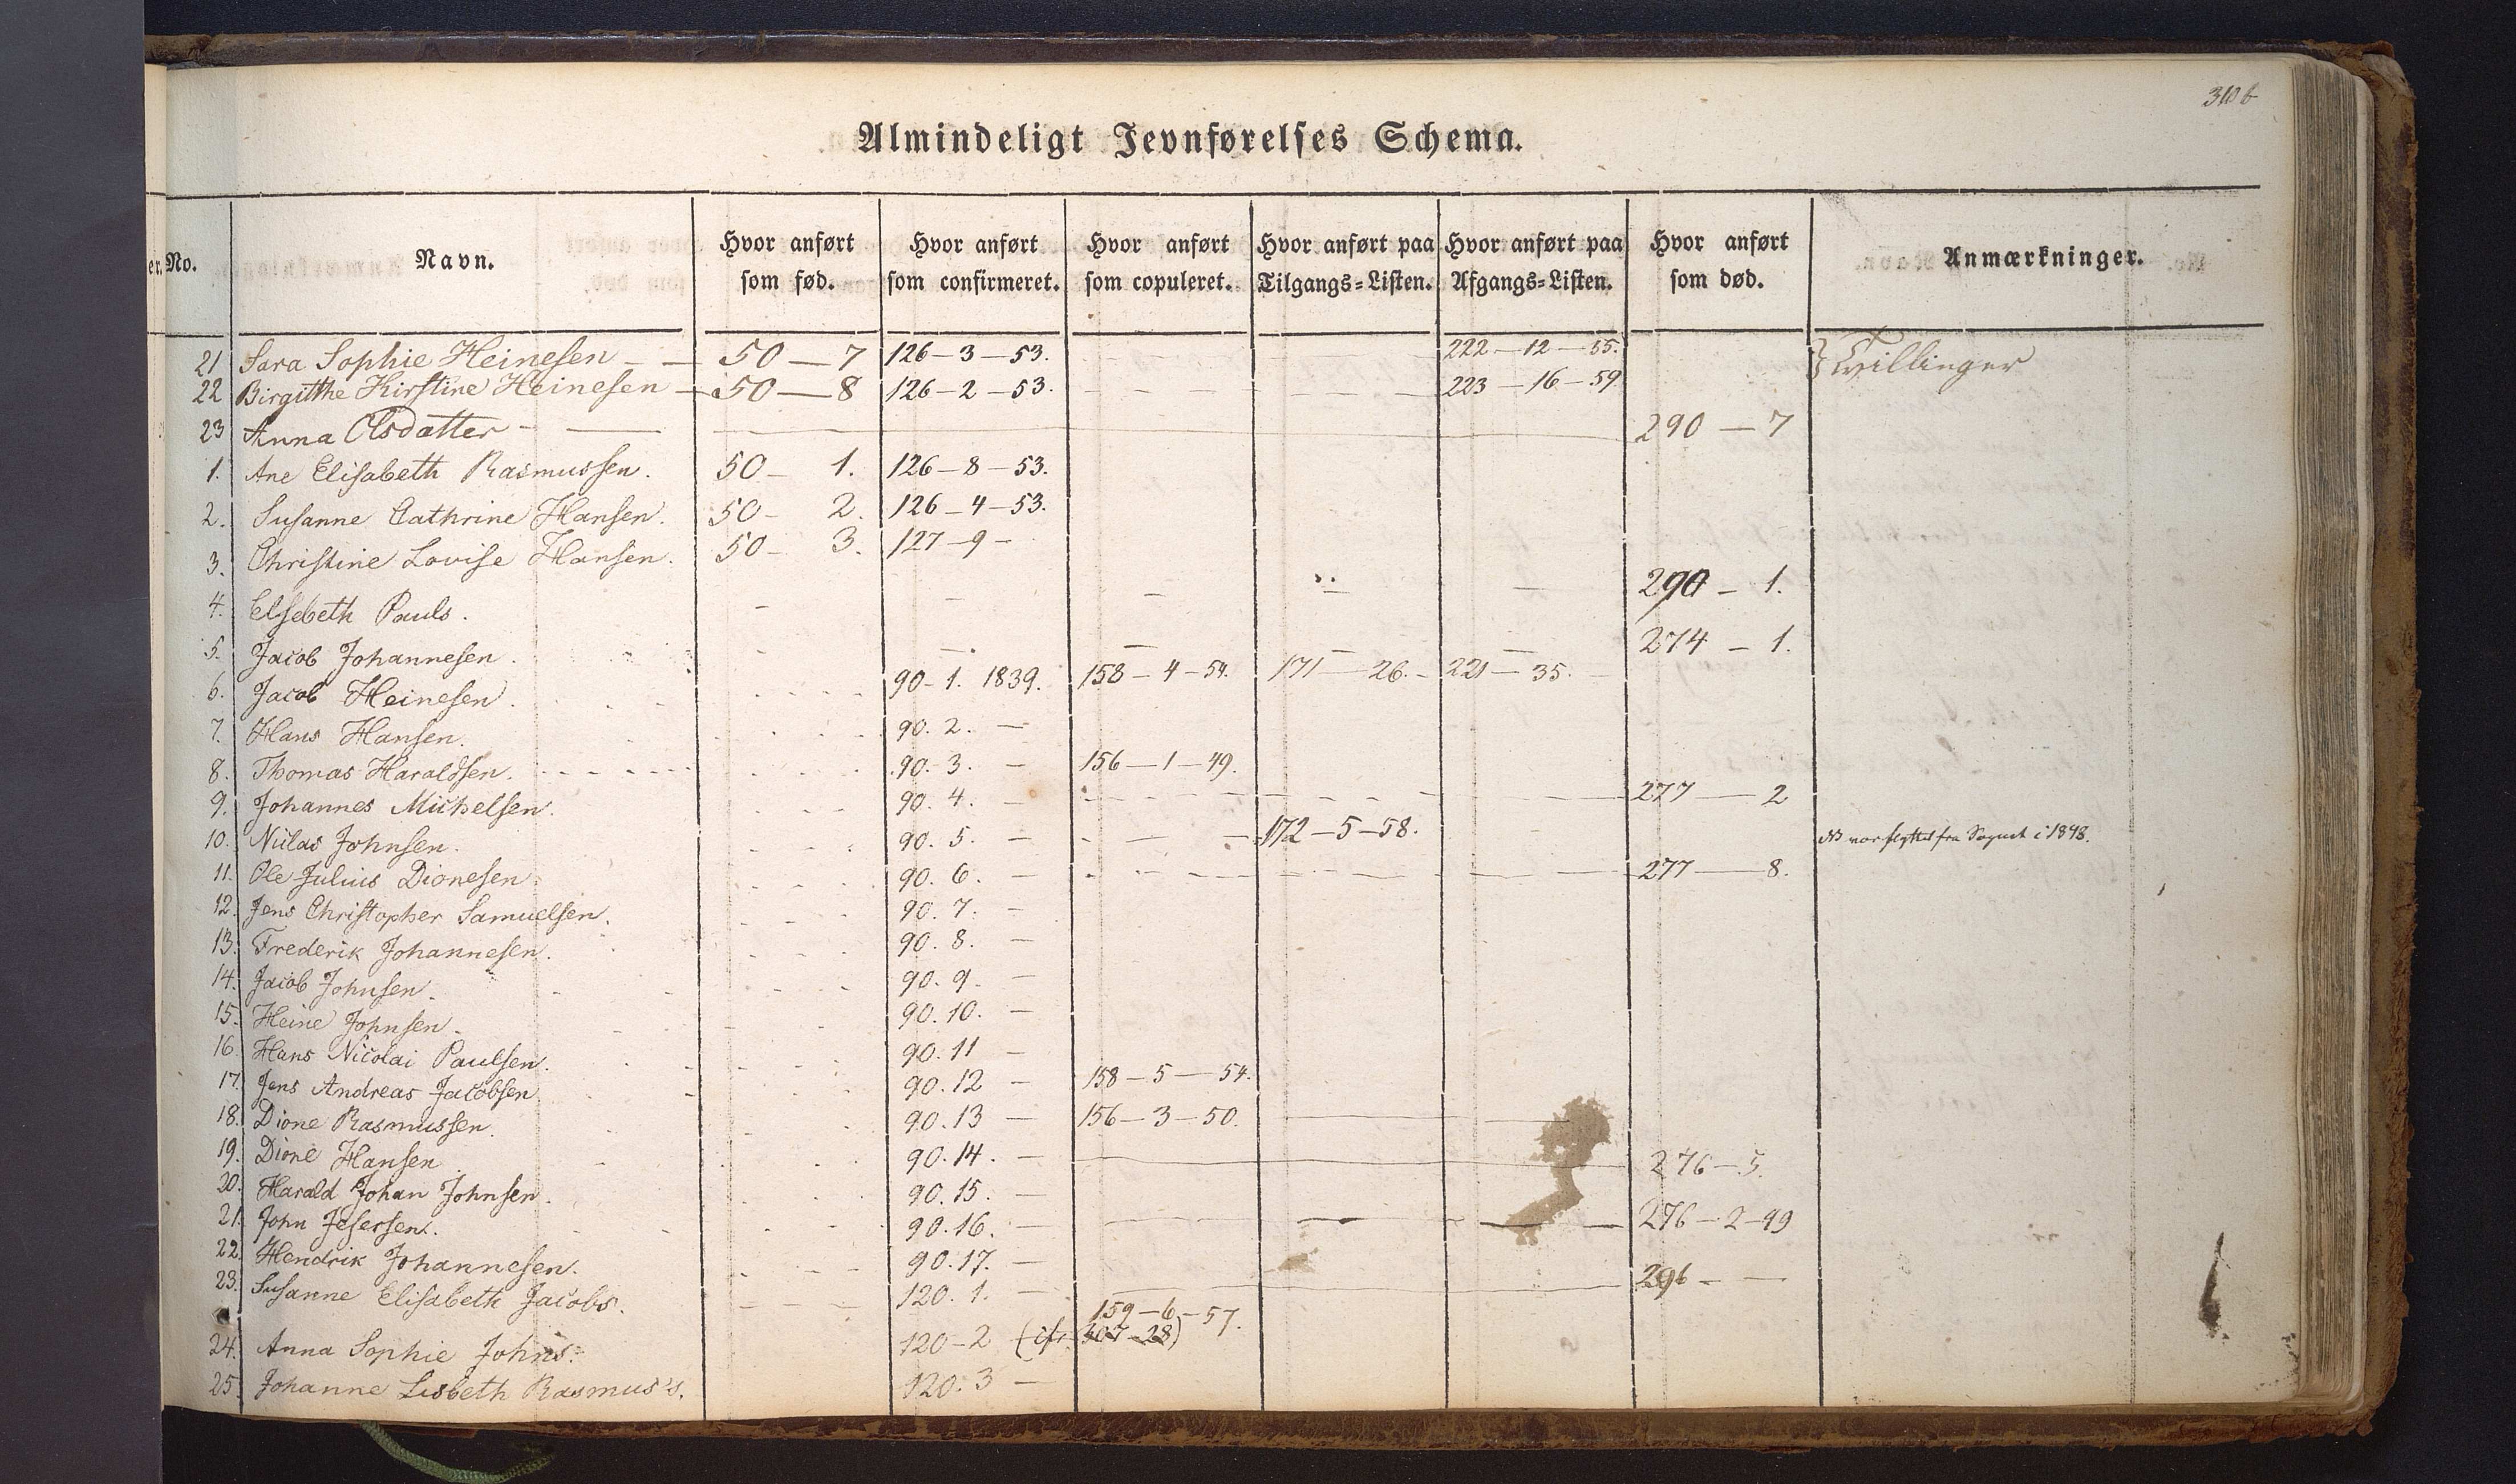 310b
Almindeligt Jevnførelses Schema.
er. No. Navn. Hvor anført som fød. Hvor anført som confirmeret. Hvor anført som copuleret. Hvor anført paa Tilgangs=Listen. Hvor anført paa Afgangs=Listen. Hvor anført som død. Anmærkninger.
21 Sara Sophie Heinesen — 50 — 7 126 — 3 — 53. 222 — 12 — 55. } Tvillinger
22 Birgitthe Kirstine Heinesen — 50 — 8 126 — 2 — 53. 223 — 16 — 59
23 Anna Olsdatter — 290 — 7
1. Ane Elisabeth Rasmussen. 50 — 1. 126 — 8 — 53.
2. Susanne Cathrine Hansen. 50 — 2. 126 — 4 — 53.
3. Christine Lovise Hansen. 50 — 3. 127 — 9 —
4. Elsebeth Pauls. 290 — 1.
5. Jacob Johannesen. 274 — 1.
6. Jacob Heinesen. 90 — 1. 1839. 158 — 4 — 54. 171 — 26. 221 — 35.
7. Hans Hansen. 90. 2. —
8. Thomas Haraldsen. 90. 3. — 156 — 1 — 49.
9. Johannes Michelsen. 90. 4. — 277 — 2
10. Niclas Johnsen. 90. 5. — 172 — 5 — 58. NB var flyttet fra Sognet i 1848.
11. Ole Julius Dionesen 90. 6. — 277 — 8.
12. Jens Christopher Samuelsen. 90. 7. —
13. Frederik Johannesen. 90. 8. —
14. Jacob Johnsen. 90. 9. —
15. Heine Johnsen. 90. 10. —
16. Hans Nicolai Paulsen. 90. 11 —
17. Jens Andreas Jacobsen. 90. 12 — 158 — 5 — 54.
18. Dione Rasmussen. 90. 13 — 156 — 3 — 50.
19. Dione Hansen. 90. 14. — 276 — 5.
20. Harald Johan Johnsen. 90. 15. —
21. John Jesersen. 90. 16. — 276 — 2 — 49
22. Hendrik Johannesen. 90. 17. —
23. Susanne Elisabeth Jacobs. 120. 1. — 296 — —
24. Anna Sophie Johns. 120 — 2 (cfr. 307 — 28) 159 — 6 — 57.
25. Johanne Lisbeth Rasmus's. 120. 3 —